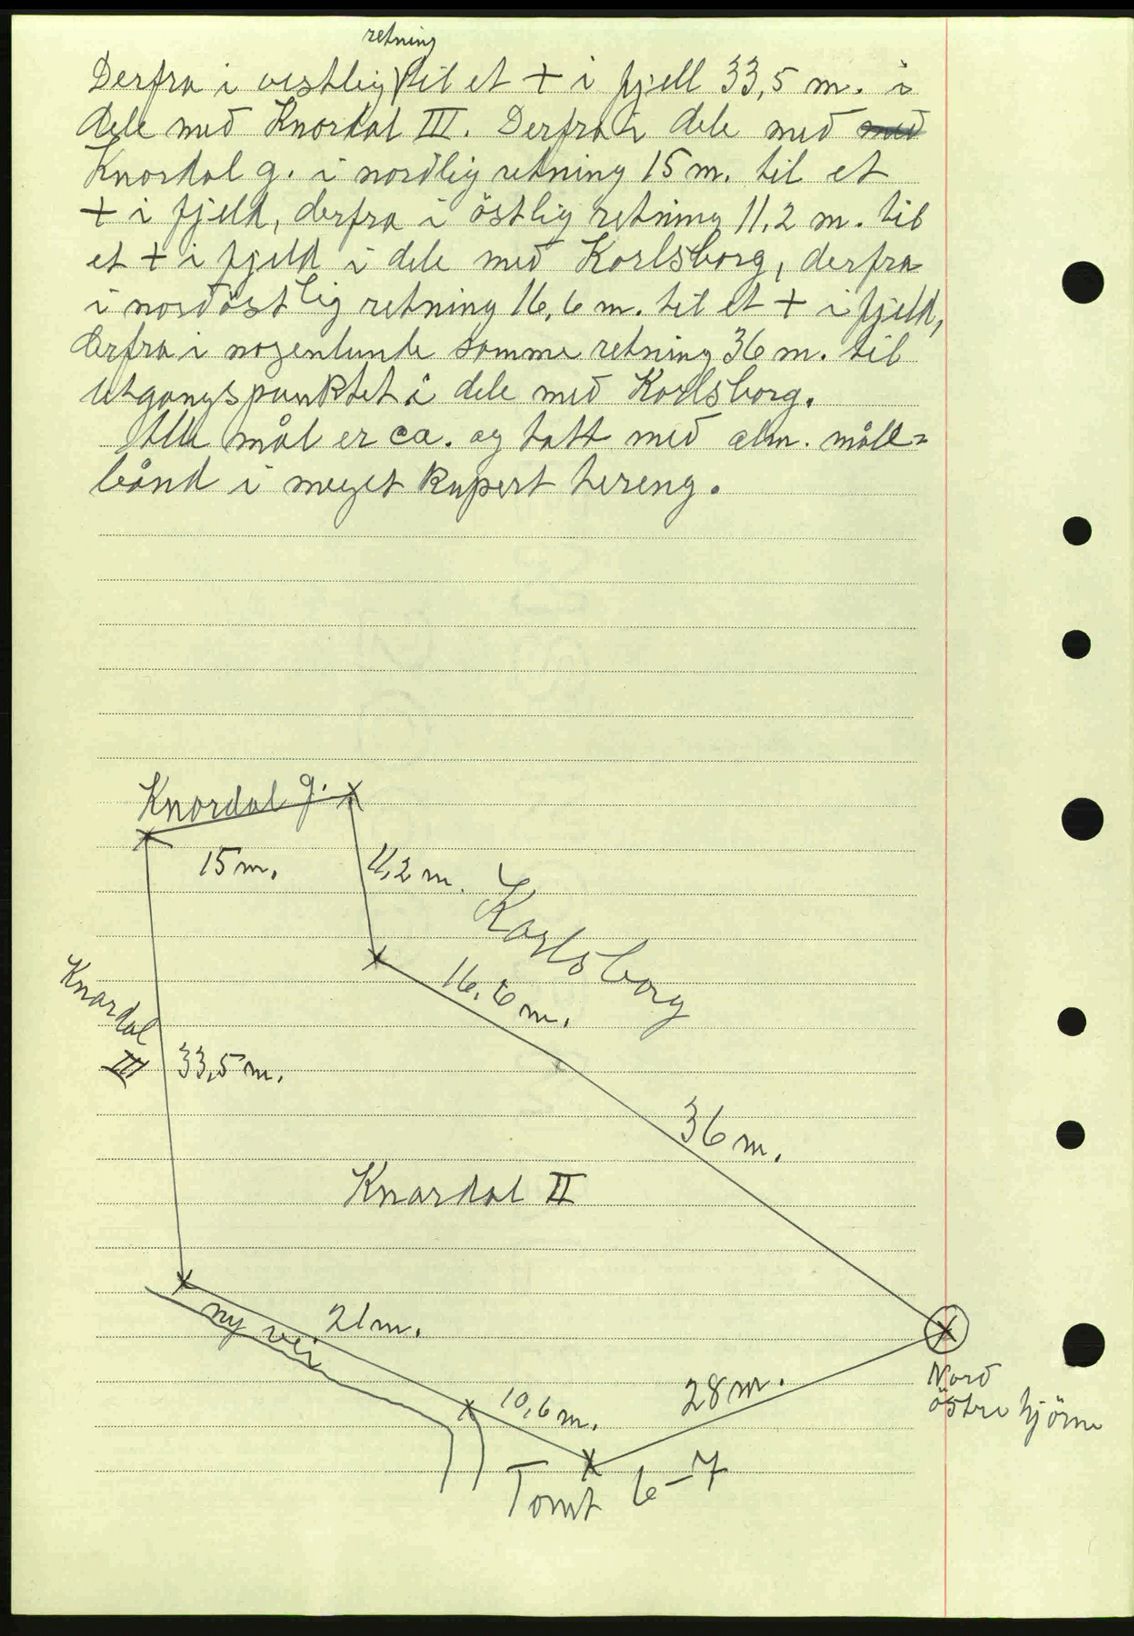 retning
Derfra i vestlig til et + i fjell 33,5 m. i
dele med Knardal III. Derfra i dele med med
Knardal g. i nordlig retning 15 m. til et
+ i fjeld, derfra i östlig retning 11,2 m. til
et + i fjeld i dele med Karlsborg, derfra
i nordöstlig retning 16,6 m. til et + i fjeld,
derfra i nogenlunde samme retning 36 m. til
utgangspunktet i dele med Karlsborg.
Alle mål er ca. og tatt med alm. målle=
bånd i meget kupert tereng.
Knardal g.
15 m.
11,2 m.
Karlsborg
16,6 m.
Knardal
III
33,5 m.
36 m.
Knardal II
ny vei
21 m.
10,6 m.
28 m.
Nord
östre hjörne
Tomt 6-7